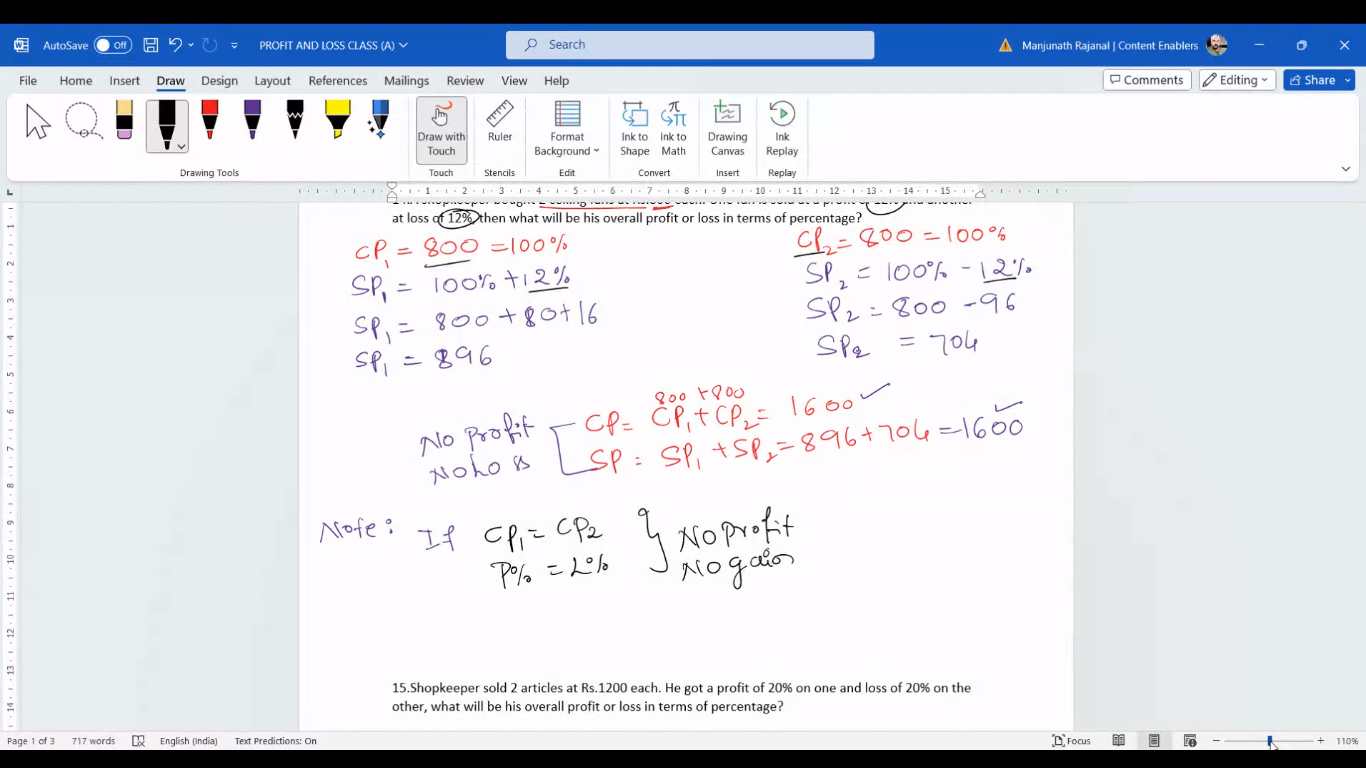 AutoSave Off PROFIT AND LOSS CLASS (A) Search Manjunath Rajanal | Content Enablers
File Home Insert Draw Design Layout References Mailings Review View Help Comments Editing Share
Draw with Touch Ruler Format Background Ink to Shape Ink to Math Drawing Canvas Ink Replay
Drawing Tools Touch Stencils Edit Convert Insert Replay
1 2 3 4 5 6 7 8 9 10 11 12 13 14 15
at loss of 12%, then what will be his overall profit or loss in terms of percentage?
CP1 = 800 = 100%
SP1 = 100% + 12%
SP1 = 800 + 80 + 16
SP1 = 896
CP2 = 800 = 100%
SP2 = 100% - 12%
SP2 = 800 - 96
SP2 = 704
No profit
No Loss
800 + 800
CP = CP1 + CP2 = 1600
SP = SP1 + SP2 = 896 + 704 = 1600
Note: If CP1 = CP2
P% = L%
No profit
No gain
15.Shopkeeper sold 2 articles at Rs.1200 each. He got a profit of 20% on one and loss of 20% on the
other, what will be his overall profit or loss in terms of percentage?
Page 1 of 3 717 words English (India) Text Predictions: On Focus 110%